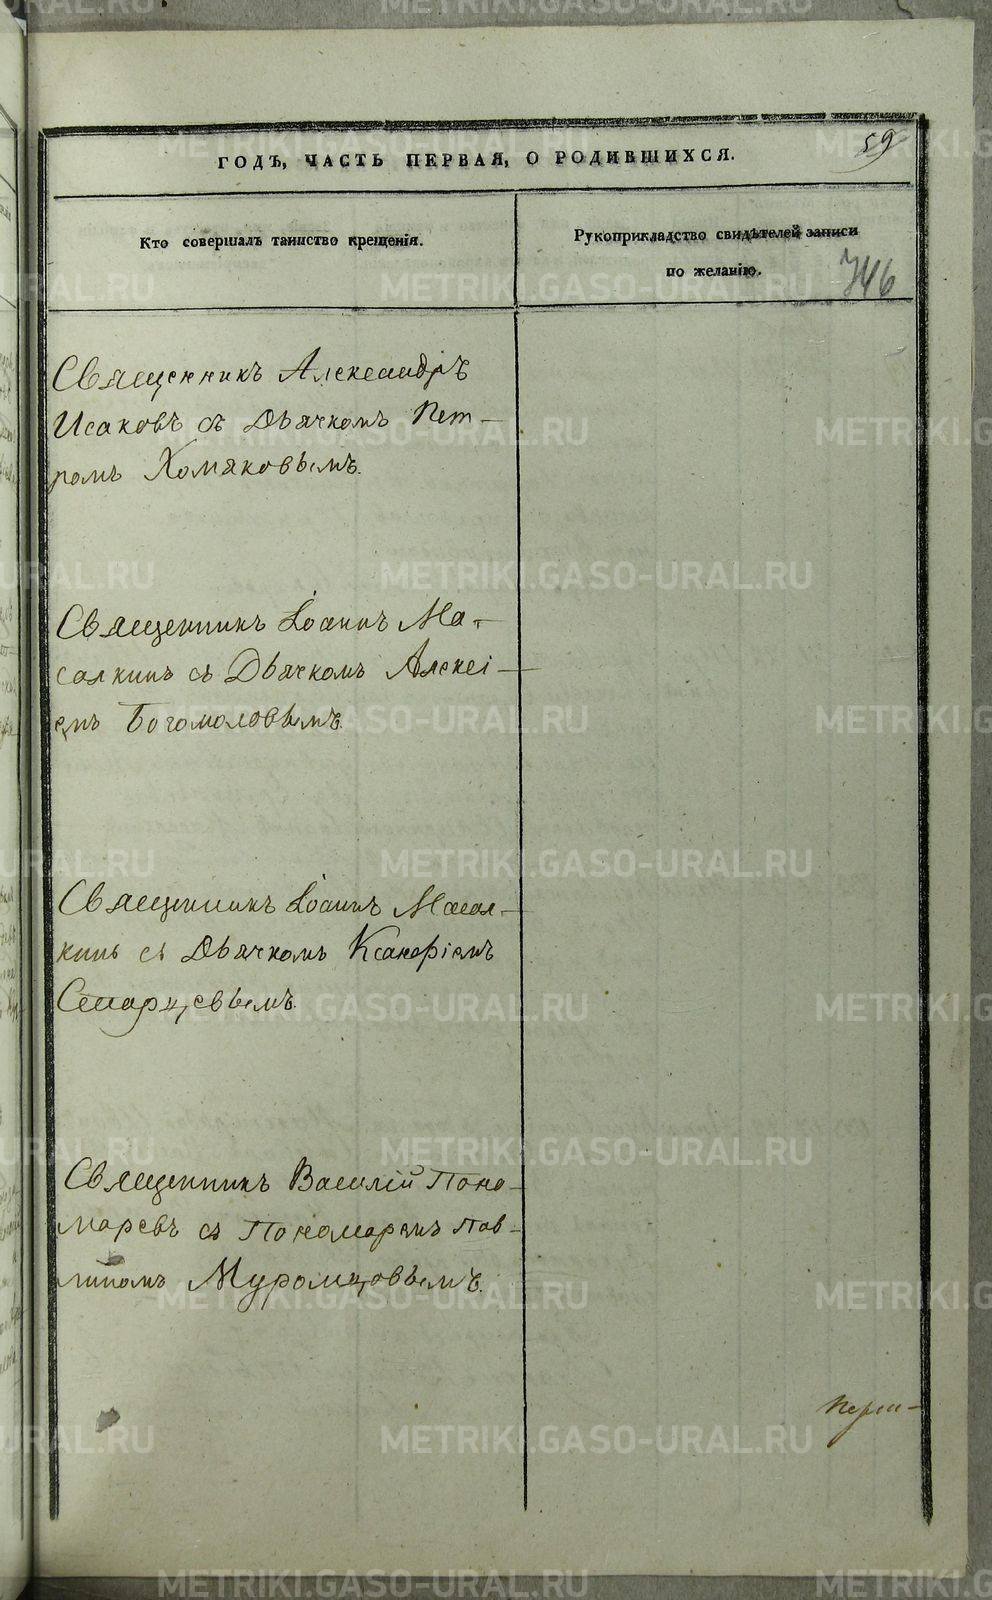 59
ГОДЪ, ЧАСТЬ ПЕРВАЯ, О РОДИВШИХСЯ.
Кто совершалъ таинство крещенія.
Рукоприкладство свидѣтелей записи
по желанію.
746
Священникъ Александръ
Исаковъ съ Дьячкомъ Пет-
ромъ Хомяковымъ.
Священникъ Іоаннъ Ма-
салкинъ съ Дьячкомъ Алексі-
емъ Богомоловымъ.
Священникъ Іоаннъ Масал-
кинъ съ Дьячкомъ Ксанфіемъ
Старцевымъ.
Священникъ Василій Поно-
маревъ съ Пономаремъ Пав-
линомъ Муромцовымъ.
METRIKI.GASO-URAL.RU